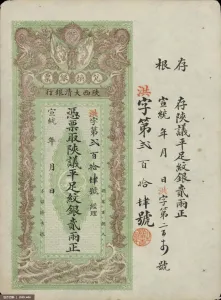 存根
存陝議平足紋銀貳兩正
宣統 年 月 日洪字第二百 號
洪字第貳百拾肆號
陝西大清銀行
洪字第貳百拾肆號 經理
憑票取陝議平足紋銀貳兩正
宣統 年 月 日